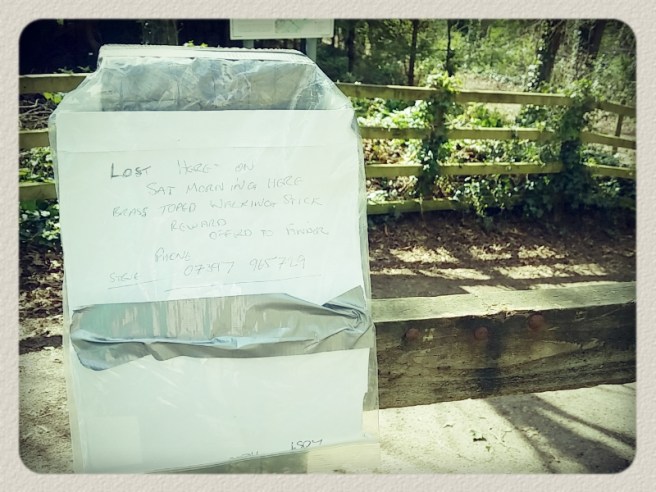 LOST HERE ON
SAT MORNING HERE
BRASS TOPED WALKING STICK
REWARD
OFFRD TO FINDER
PHONE
07397 965729